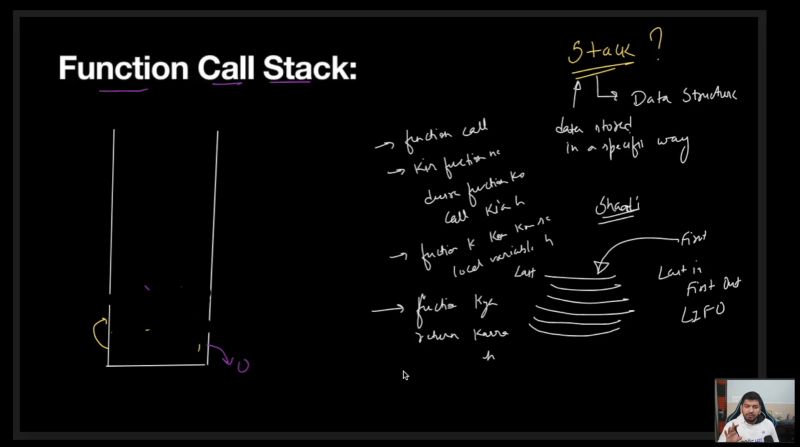 Function Call Stack:
Stack ?
Data Structure
data stored
in a specific way
function call
Kis function ne
dusre function ko
call Kia h
function K Kon Kon se
local variable h
Shaadi
First
Last
Last in
First Out
LIFO
function Kya
return Karra
h